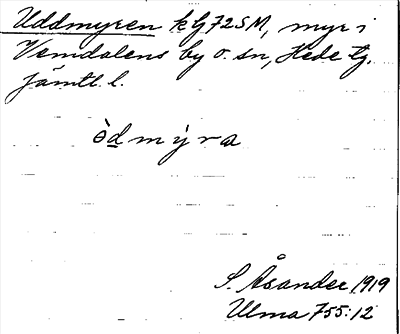 Uddmyren kG72SM, myr i
Vemdalens by o. sn, Hede tg.
Jämtl. l.
òdmýra
S. Åsander 1919
Ulma 755:12